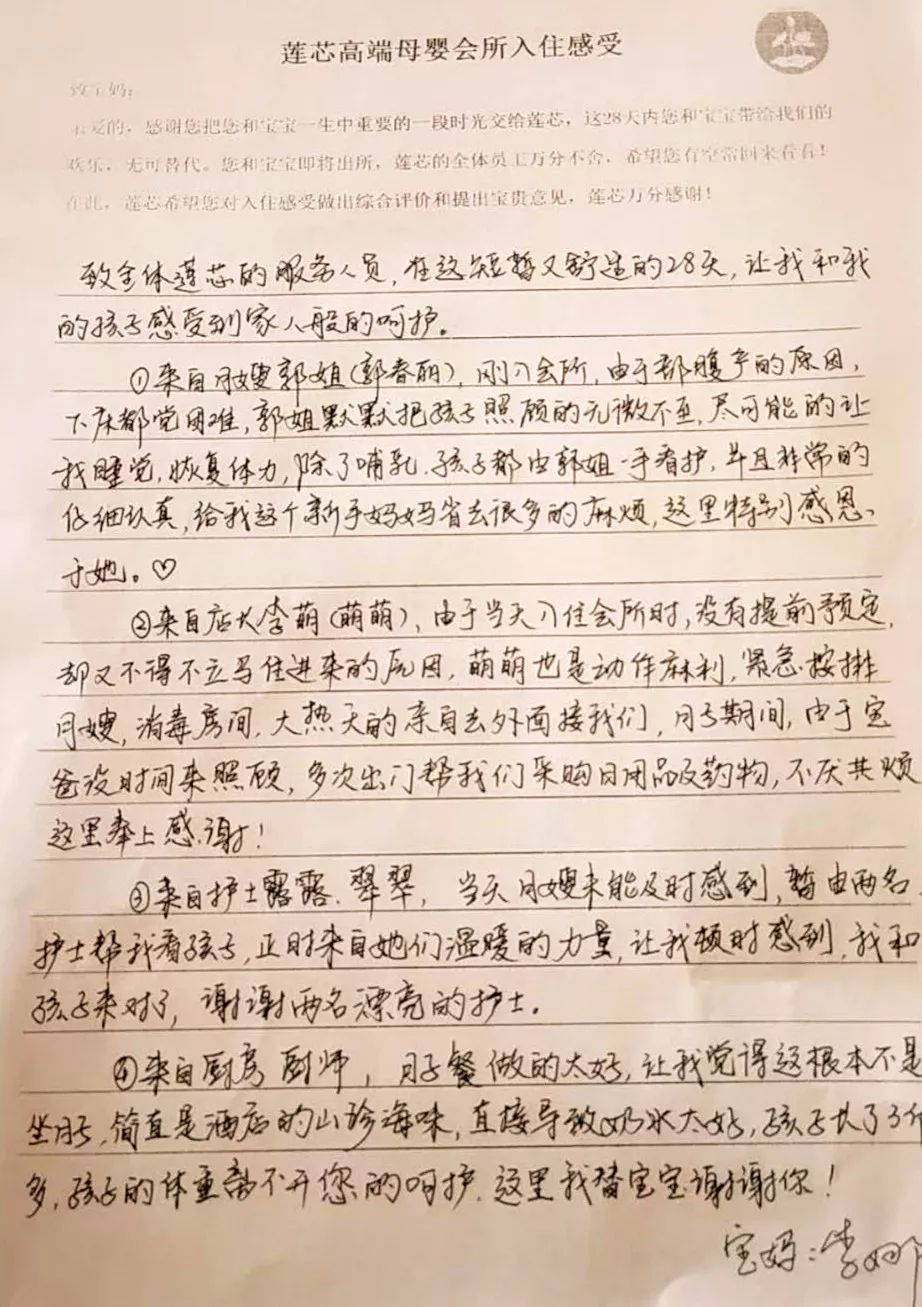 莲芯高端母婴会所入住感受
致宝妈：
亲爱的，感谢您把您和宝宝一生中重要的一段时光交给莲芯，这28天内您和宝宝带给我们的
欢乐，无可替代。您和宝宝即将出所，莲芯的全体员工万分不舍，希望您有空常回来看看！
在此，莲芯希望您对入住感受做出综合评价和提出宝贵意见，莲芯万分感谢！
致全体莲芯的服务人员，在这短暂又舒适的28天，让我和我
的孩子感受到家人般的呵护。
①来自月嫂郭姐(郭春丽)，刚入会所，由于剖腹产的原因，
下床都觉困难，郭姐默默把孩子照顾的无微不至，尽可能的让
我睡觉，恢复体力，除了哺乳，孩子都由郭姐一手看护，并且非常的
仔细认真，给我这个新手妈妈省去很多的麻烦，这里特别感恩
于她。♡
②来自店长李萌(萌萌)，由于当天入住会所时，没有提前预定，
却又不得不立马住进来的原因，萌萌也是动作麻利，紧急按排
月嫂，消毒房间，大热天的亲自去外面接我们，月子期间，由于宝
爸没时间来照顾，多次出门帮我们采购日用品及药物，不厌其烦
这里奉上感谢！
③来自护士露露、翠翠，当天月嫂未能及时感到，暂由两名
护士帮我看孩子，正时来自她们温暖的力量，让我顿时感到，我和
孩子来对了，谢谢两名漂亮的护士。
④来自厨房厨师，月子餐做的太好，让我觉得这根本不是
坐月子，简直是酒店的山珍海味，直接导致奶水太好，孩子长了3斤
多，孩子的体重离不开您的呵护，这里我替宝宝谢谢你！
宝妈：李娜